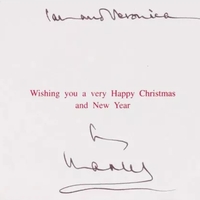 Ian and Veronica
Wishing you a very Happy Christmas
and New Year